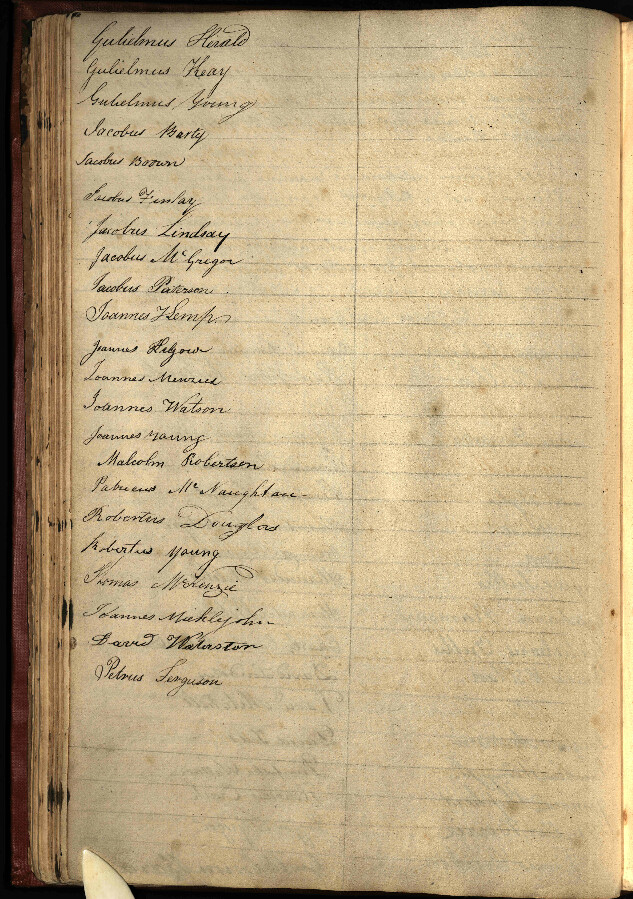 Gulielmus Herald
Gulielmus Keay
Gulielmus Young
Jacobus Barty
Jacobus Brown
Jacobus Finlay
Jacobus Lindsay
Jacobus McGregor
Jacobus Paterson
Joannes Kemp
Joannes
Joannes Menzies
Joannes Watson
Joannes Young
Malcolm Robertson
Patricius McNaughtan
Robertus Douglas
Robertus Young
Thomas McKenzie
Joannes Micklejohn
David Waterston
Petrus Ferguson